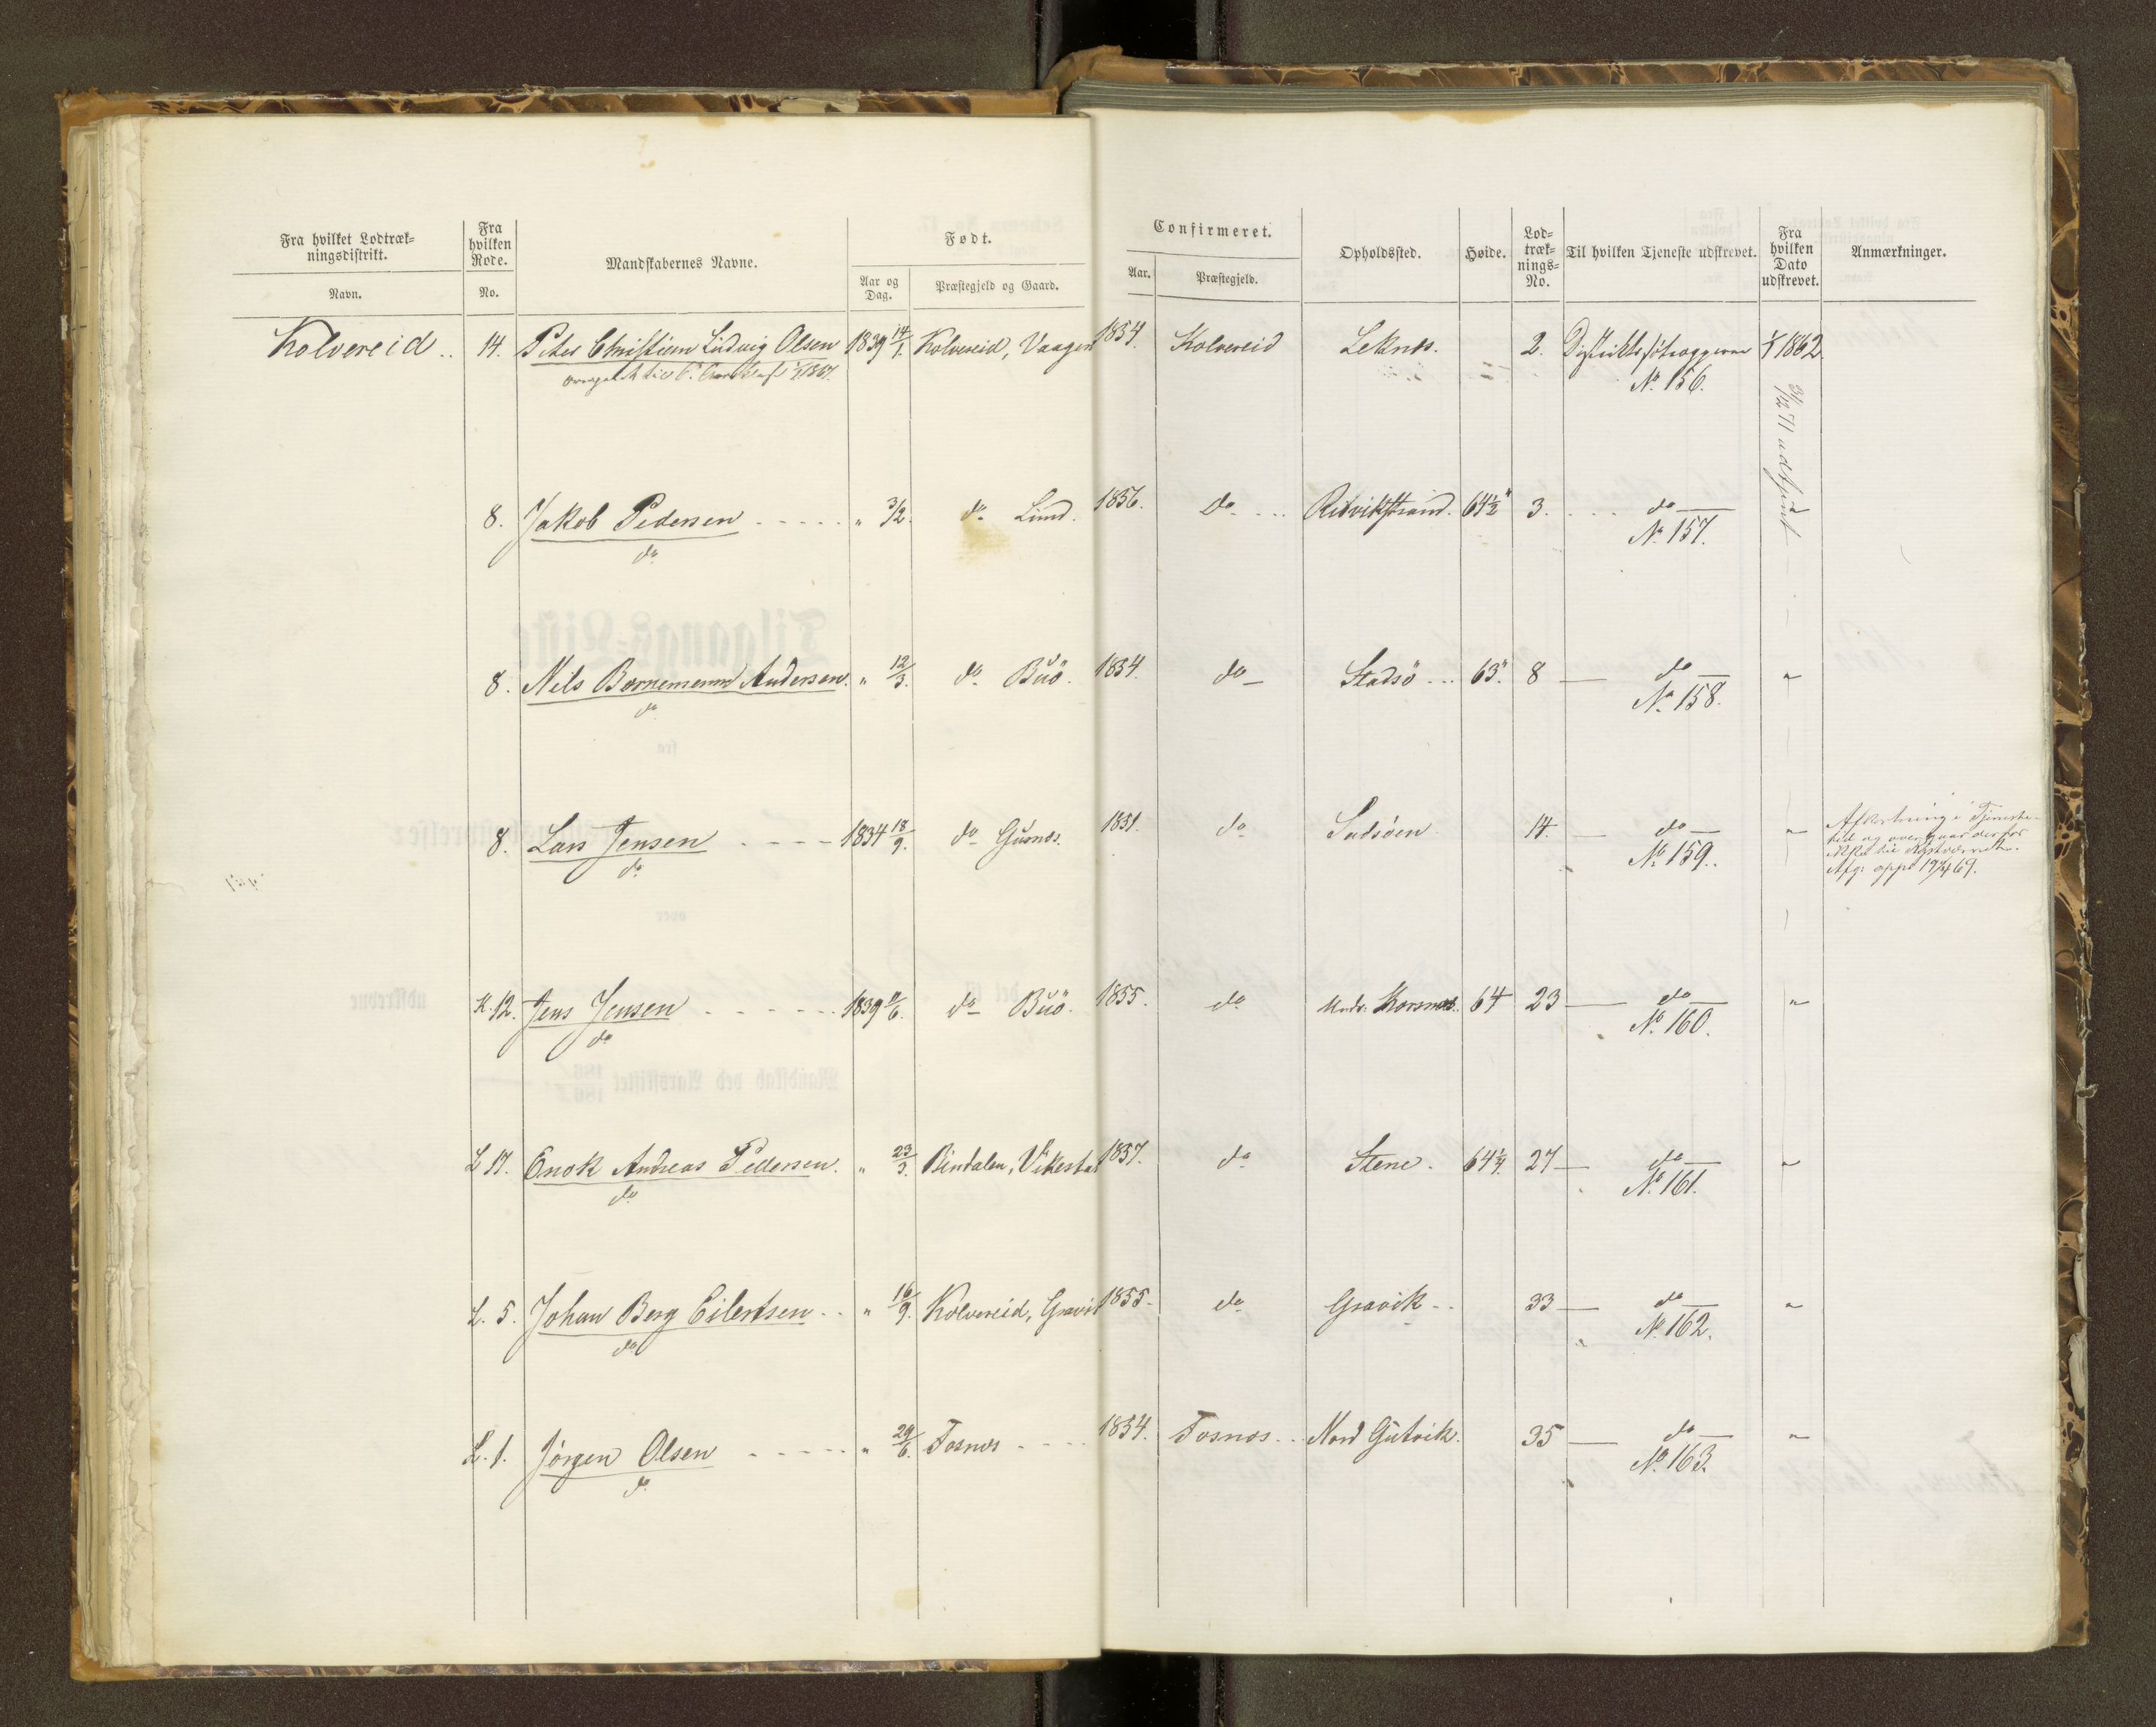 Fra hvilket Lodtræk-
ningsdistrikt.
Navn.
Fra
hvilken
Rode.
No.
Mandskabernes Navne.
Født.
Aar og
Dag.
Præstegjeld og Gaard.
Confirmeret.
Aar.
Præstegjeld.
Opholdssted.
Høide.
Lod-
træk-
nings-
No.
Til hvilken Tjeneste udskrevet.
Fra
hvilken
Dato
udskrevet.
Anmærkninger.
Kolvereid .. 14. Peter Christian Ludvig Olsen 1839 14/1. Kolvereid, Vaagen 1854. Kolvereid Leknes. 2. Distrikts 1/1 1862
No. 156.
31/12 71 udtjent
8. Jakob Pedersen " 3/2. do Lund. 1856. do Rødvikstrand. 64½" 3. do "
do No. 157.
8. Nils Bornemann Andersen. " 12/3. do Buö. 1854. do Stadsö 63" 8 do "
do No. 158.
8. Lars Jensen 1834 18/9. do Gusnes. 1851. do 14. do "
do No. 159.
Afkortning i Tjeneste-
tid og overgaar derfor
ikke til
19/4 69.
K. 12. Jens Jensen 1839 do Buö. 1855. do Undr. Korsnes. 64 23 do "
do No. 160.
L 17. Enok Andreas Pedersen. " 23/3. Bindalen, Vikestad 1857. do Stene. 64¼ 27 do "
do No. 161.
L. 5. Johan Berg Eilertsen " 16/9. Kolvereid, Gravik 1855. do Gravik 33 do "
do No. 162.
L. 1. Jörgen Olsen " 29/6. Fosnes 1854. Fosnes Nord Gutvik. 35 do "
do No. 163.